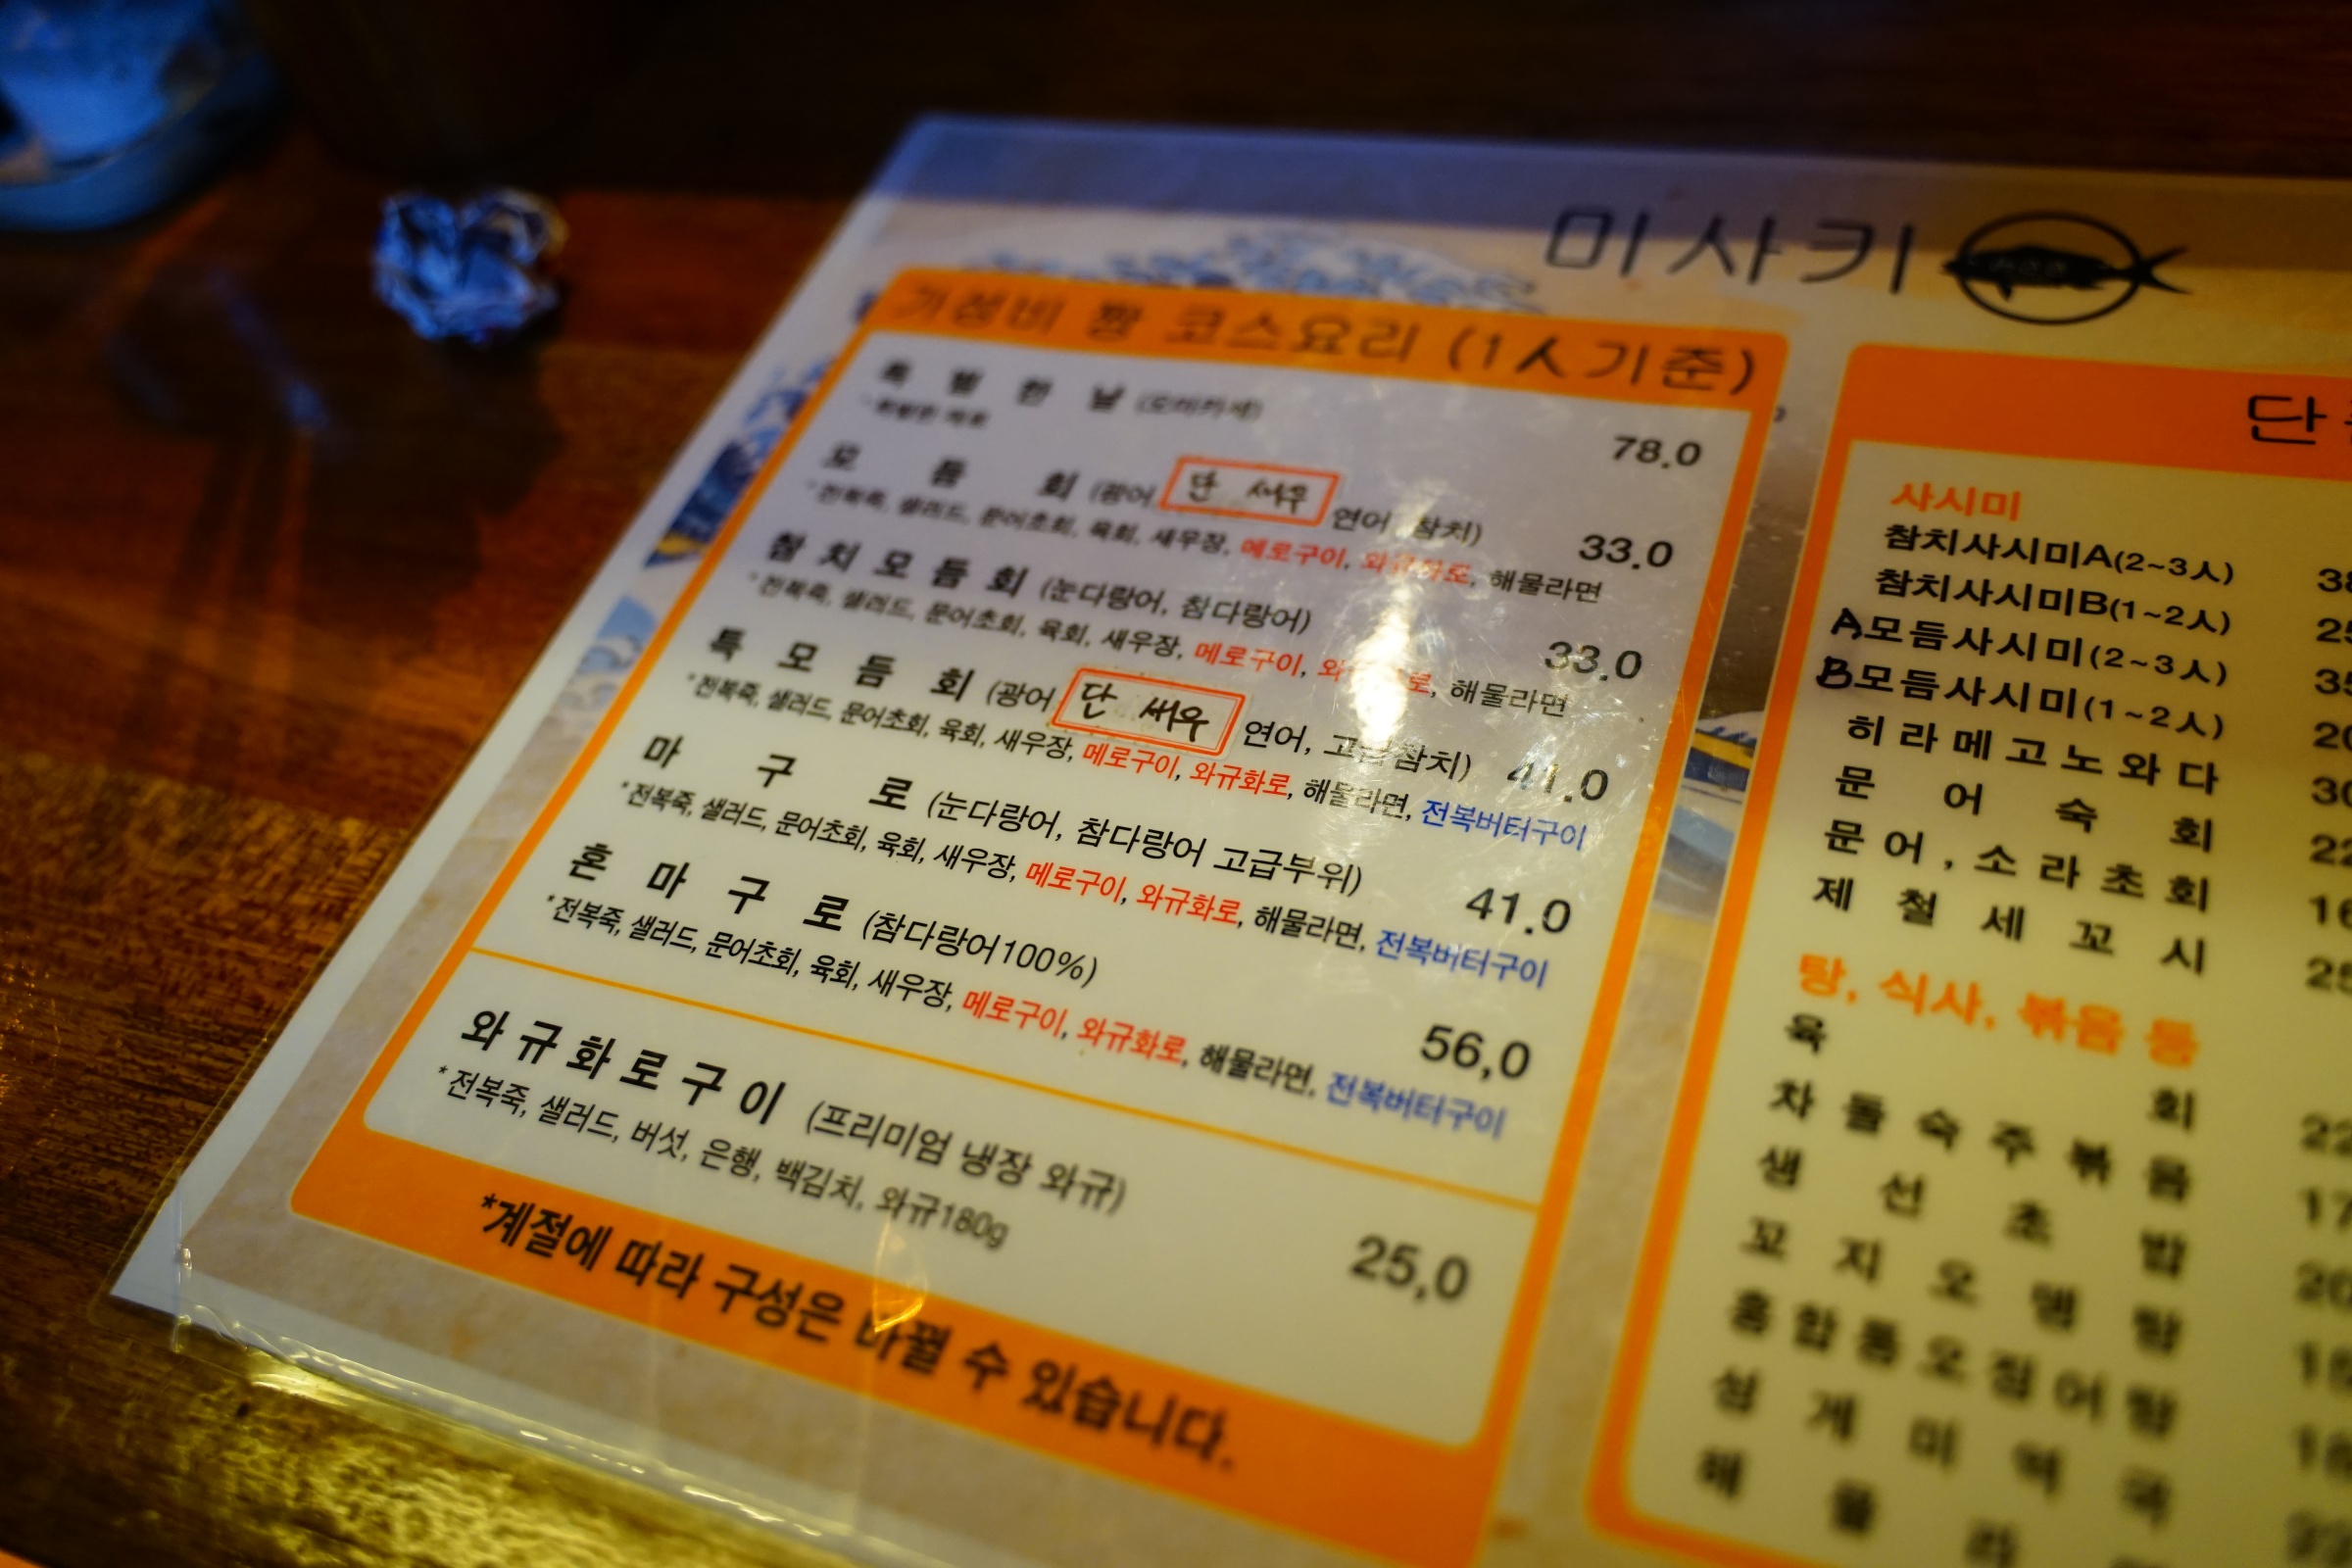 미사키
가성비 짱 코스요리 (1人기준)
특별한날 (오마카세)
78.0
모듬회 (광어 단 새우 연어, 참치)
33.0
*전복죽, 샐러드, 문어초회, 육회, 새우장, 메로구이, 와규화로, 해물라면
참치모듬회 (눈다랑어, 참다랑어)
33.0
*전복죽, 샐러드, 문어초회, 육회, 새우장, 메로구이, 해물라면
특모듬회 (광어 단 새우 연어, 고급참치)
41.0
*전복죽, 샐러드, 문어초회, 육회, 새우장, 메로구이, 와규화로, 해물라면, 전복버터구이
마구로 (눈다랑어, 참다랑어 고급부위)
41.0
*전복죽, 샐러드, 문어초회, 육회, 새우장, 메로구이, 와규화로, 해물라면, 전복버터구이
혼마구로 (참다랑어100%)
56,0
*전복죽, 샐러드, 문어초회, 육회, 새우장, 메로구이, 와규화로, 해물라면, 전복버터구이
와규화로구이 (프리미엄 냉장 와규)
25,0
*전복죽, 샐러드, 버섯, 은행, 백김치, 와규180g
*계절에 따라 구성은 바뀔 수 있습니다.
단
사시미
참치사시미A(2~3人)
참치사시미B(1~2人)
A모듬사시미(2~3人)
B모듬사시미(1~2人)
히라메고노와다
문어숙회
문어,소라초회
제철세꼬시
탕, 식사, 볶음 등
육회
차돌숙주볶음
생선초밥
꼬지오뎅탕
홍합통오징어탕
성게미역국
해물라